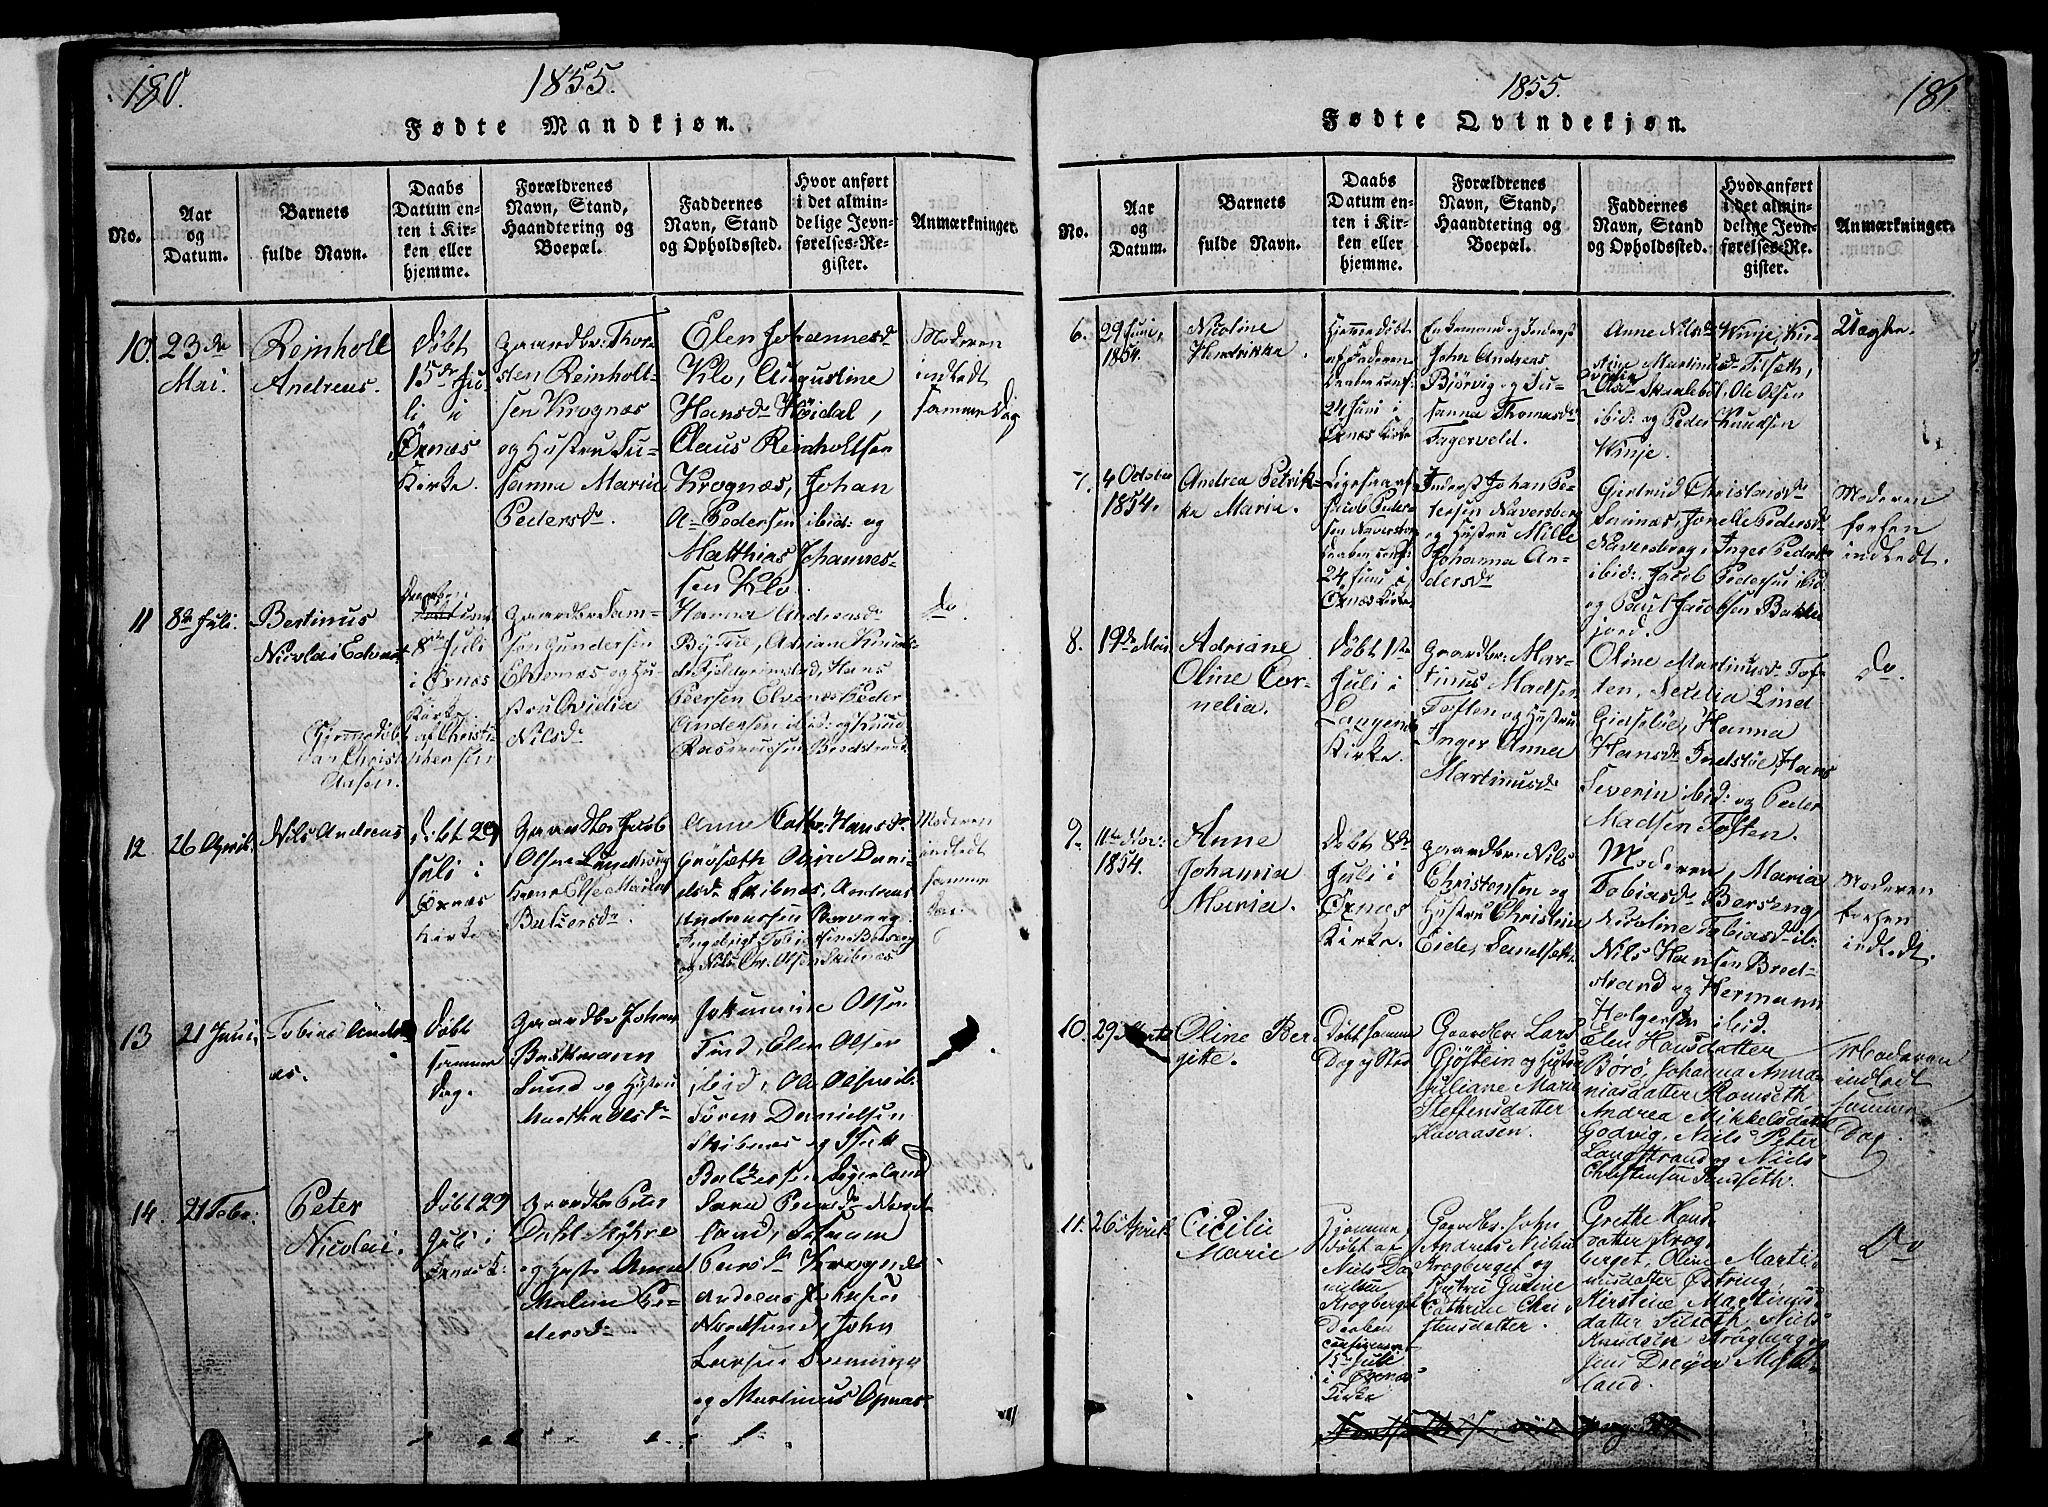 180.
1855.
Fødte Mandkjøn.
No.
Aar
og
Datum.
Barnets
fulde Navn.
Daabs
Datum en-
ten i Kir-
ken eller
hjemme.
Forældrenes
Navn, Stand,
Haandtering og
Boepæl.
Faddernes
Navn, Stand
og Opholdssted.
Hvor anført
i det almin-
delige Jevn-
førelses-Re-
gister.
Anmærkninger.
10.
23de
Mai.
Reinholl
Andreas.
Døbt
15de Ju-
li i
Øxnæs
Kirke.
Gaardbr: Thor-
sten Reinholt-
sen Krognæs
og Hustru Su-
sanna Maria
Pedersdr
Elen Johannesdr
Klo, Augustine
Hansdr Høidal,
Claus Reinholtsen
Krognæs, Johan
A. Pedersen ibid: og
Matthias Johannes-
sen Klo.
Moderen
indledt
samme Dag
11
8de Juli.
Bertinus
Nicolai Edvart
Daaben
conf.
8de Juli
i Øxnæs
Kirke.
Hjemmedøbt af Christi-
an Christensen
Gaardbr Sam-
son Gundersen
Elvenæs og Hu-
stru Ovidia
Nilsdr
Hanna Andreasdr
Adriane Knuds-
dr Fjeldgrimstad, Hans
Peersen Elvenæs Peder
Andersen ibid: og Knud
Rasmussen Bredstrand
do.
12
26 April.
Nils Andreas
Døbt 29
Juli i
Øxnæs
Kirke
Gaardbr Jacob
Olsen
Kone Else Maria
Baltzersdr
Anne Cathr. Hansdr
Grøsæth Oline Dani-
elsdr Skibnæs, Andreas
Andreassen
Ingebrigt Tobiassen
og Nils Chr. Olsen Skibnæs
Moderen
indledt
samme
Dag.
13
21 Juni.
Tobias Andre-
as.
Døbt
samme
Dag.
Gaardbr Johan
Bastmann
Sund og Hustru
Martha Olsdr
Jokumine Olsen
Tind, Elen Olsen
ibid, Ole Olsen ib.
Søren Danielsen
Skibnæs og Isak
Baltzersen
14.
21 Febr.
Peter
Nicolai.
Døbt 29
Juli i
Øxnæs K:
Gaardbr Peter
Dahl Myhre
og Hustr Anne
Malene Pe-
dersdr
Sara Peersdr Nord-
land,
Peersdr Krognæs
Andreas Johnsen
Nordsund, John
Larsen
og Martinus Opnæs
181
1855.
Fødte Qvindekjøn.
No.
Aar
og
Datum.
Barnets
fulde Navn.
Daabs
Datum en-
ten i Kir-
ken eller
hjemme.
Forældrenes
Navn, Stand,
Haandtering og
Boepæl.
Faddernes
Navn, Stand
og Opholdssted.
Hvor anført
i det almin-
delige Jevn-
førelses-Re-
gister.
Anmærkninger.
6.
29 Juni,
1854.
Nicoline
Hendrikka.
Hjemmedøbt
af Faderen
Daaben conf.
24 Juni i
Øxnæs Kirke
Enkemand og Inderst
John Andreas
Bjørvig og Su-
sanna Thomasdr
Fagervold.
Anne Nilsdr Winje,
Martinusdr Tilseth,
Olsdr Skarebøl, Ole Olsen
ibid: og Peder Knudsen
Winje.
Uægte.
7.
4 October
1854.
Andrea Petrik-
ke Maria.
Ligesaa af
Jacob Peder-
sen Naversberg
Daaben conf.
24 Juni i
Øxnæs Kirke.
Inderst Johan Pe-
tersen Naversberg
og Hustru Mille
Johanna An-
dersdr
Gjertrud Christensdr
Jonelle Pedersdr
Naversberg, Inger Pedersdr
ibid: Jacob Pedersen ibid
og Paul Jacobsen Bakke-
jord.
Moderen
forhen
indledt.
8.
19de Mai.
Adriane
Oline Cor-
nelia.
Døbt 1ste
Juli i
Langenes
Kirke.
Gaardbr: Mar-
tinus Madsen
Toften og Hustru
Inger Anna
Martinusdr
Oline Martinusdr Tof-
ten, Lind
Gisløe, Hanna
Hansdr Hans
Severin ibid: og Peder
Madsen Toften.
do.
9.
11te Nov:
1854.
Anne
Johanna
Maria.
Døbt 8de
Juli i
Øxnæs
Kirke.
Gaardbr: Nils
Christensen og
Hustru Christine
Eide, Tundsæt.
Moderen, Maria
Tobiasdr Berseng,
Nicoline Tobiasdr ib.
Nils Hansen Bred-
strand og Hermann
Holgersen ibid.
Moderen
forhen
indledt.
10.
29 Marts
Oline Ber-
gitte.
Døbt samme
Dag og Sted
Gaardbr Lars
Gjøstein og Hustru
Juliane Marie
Steffensdatter
Kavaasen.
Elen Hansdatter
Børø, Johanna Anna-
niasdatter Romseth,
Andrea Mikkelsdatter
Godvig, Niels Peter
Langstrand og Niels
Christensen Tundseth.
Moderen
indledt
samme
Dag
11.
26 April
Cicilie
Marie
Hjemme-
døbt af
Niels Da-
nielsen
Krogberget
Daaben
confirmeret
15de Juli
i Øxnæs
Kirke
Gaardbr. John
Andreas Nielsen
Krogberget og
Hustru Gurine
Cathrine Chri-
stensdatter.
Grethe Hans-
datter Krog-
berget, Oline Marti-
nusdatter Østring,
Kirstine Martinus-
datter Tilseth, Niels
Knudsen Krogberg og
Jens Dreyer Myhr-
land.
Do